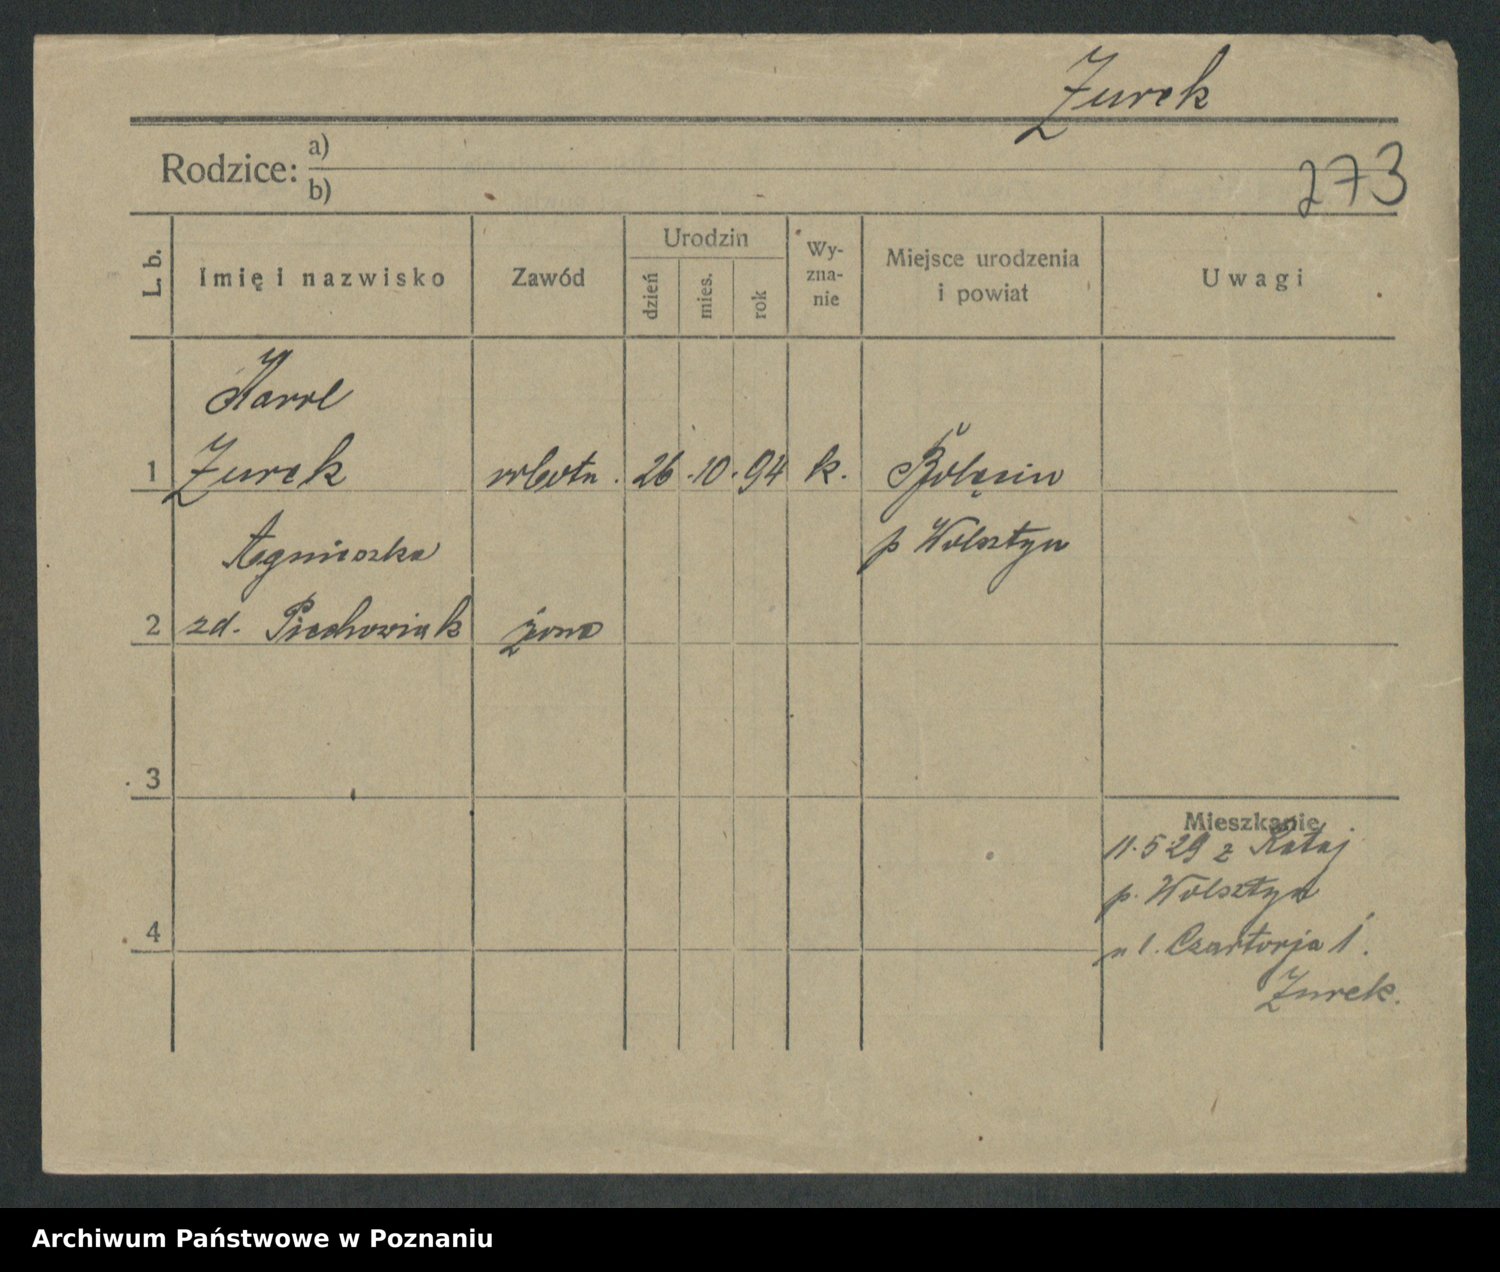 Żurek
Rodzice: a)
b)
273
L. b.
Imię i nazwisko
Zawód
Urodzin
dzień
mies.
rok
Wy-
zna-
nie
Miejsce urodzenia
i powiat
Uwagi
Karol
1 Żurek robotn. 26.10.94 k.
p Wolsztyn
Agnieszka
2 zd. Piechowiak żona
3
4
Mieszkanie
11.5 29 z Rataj
p. Wolsztyn
ul. Czartorja 1.
Żurek.
Archiwum Państwowe w Poznaniu